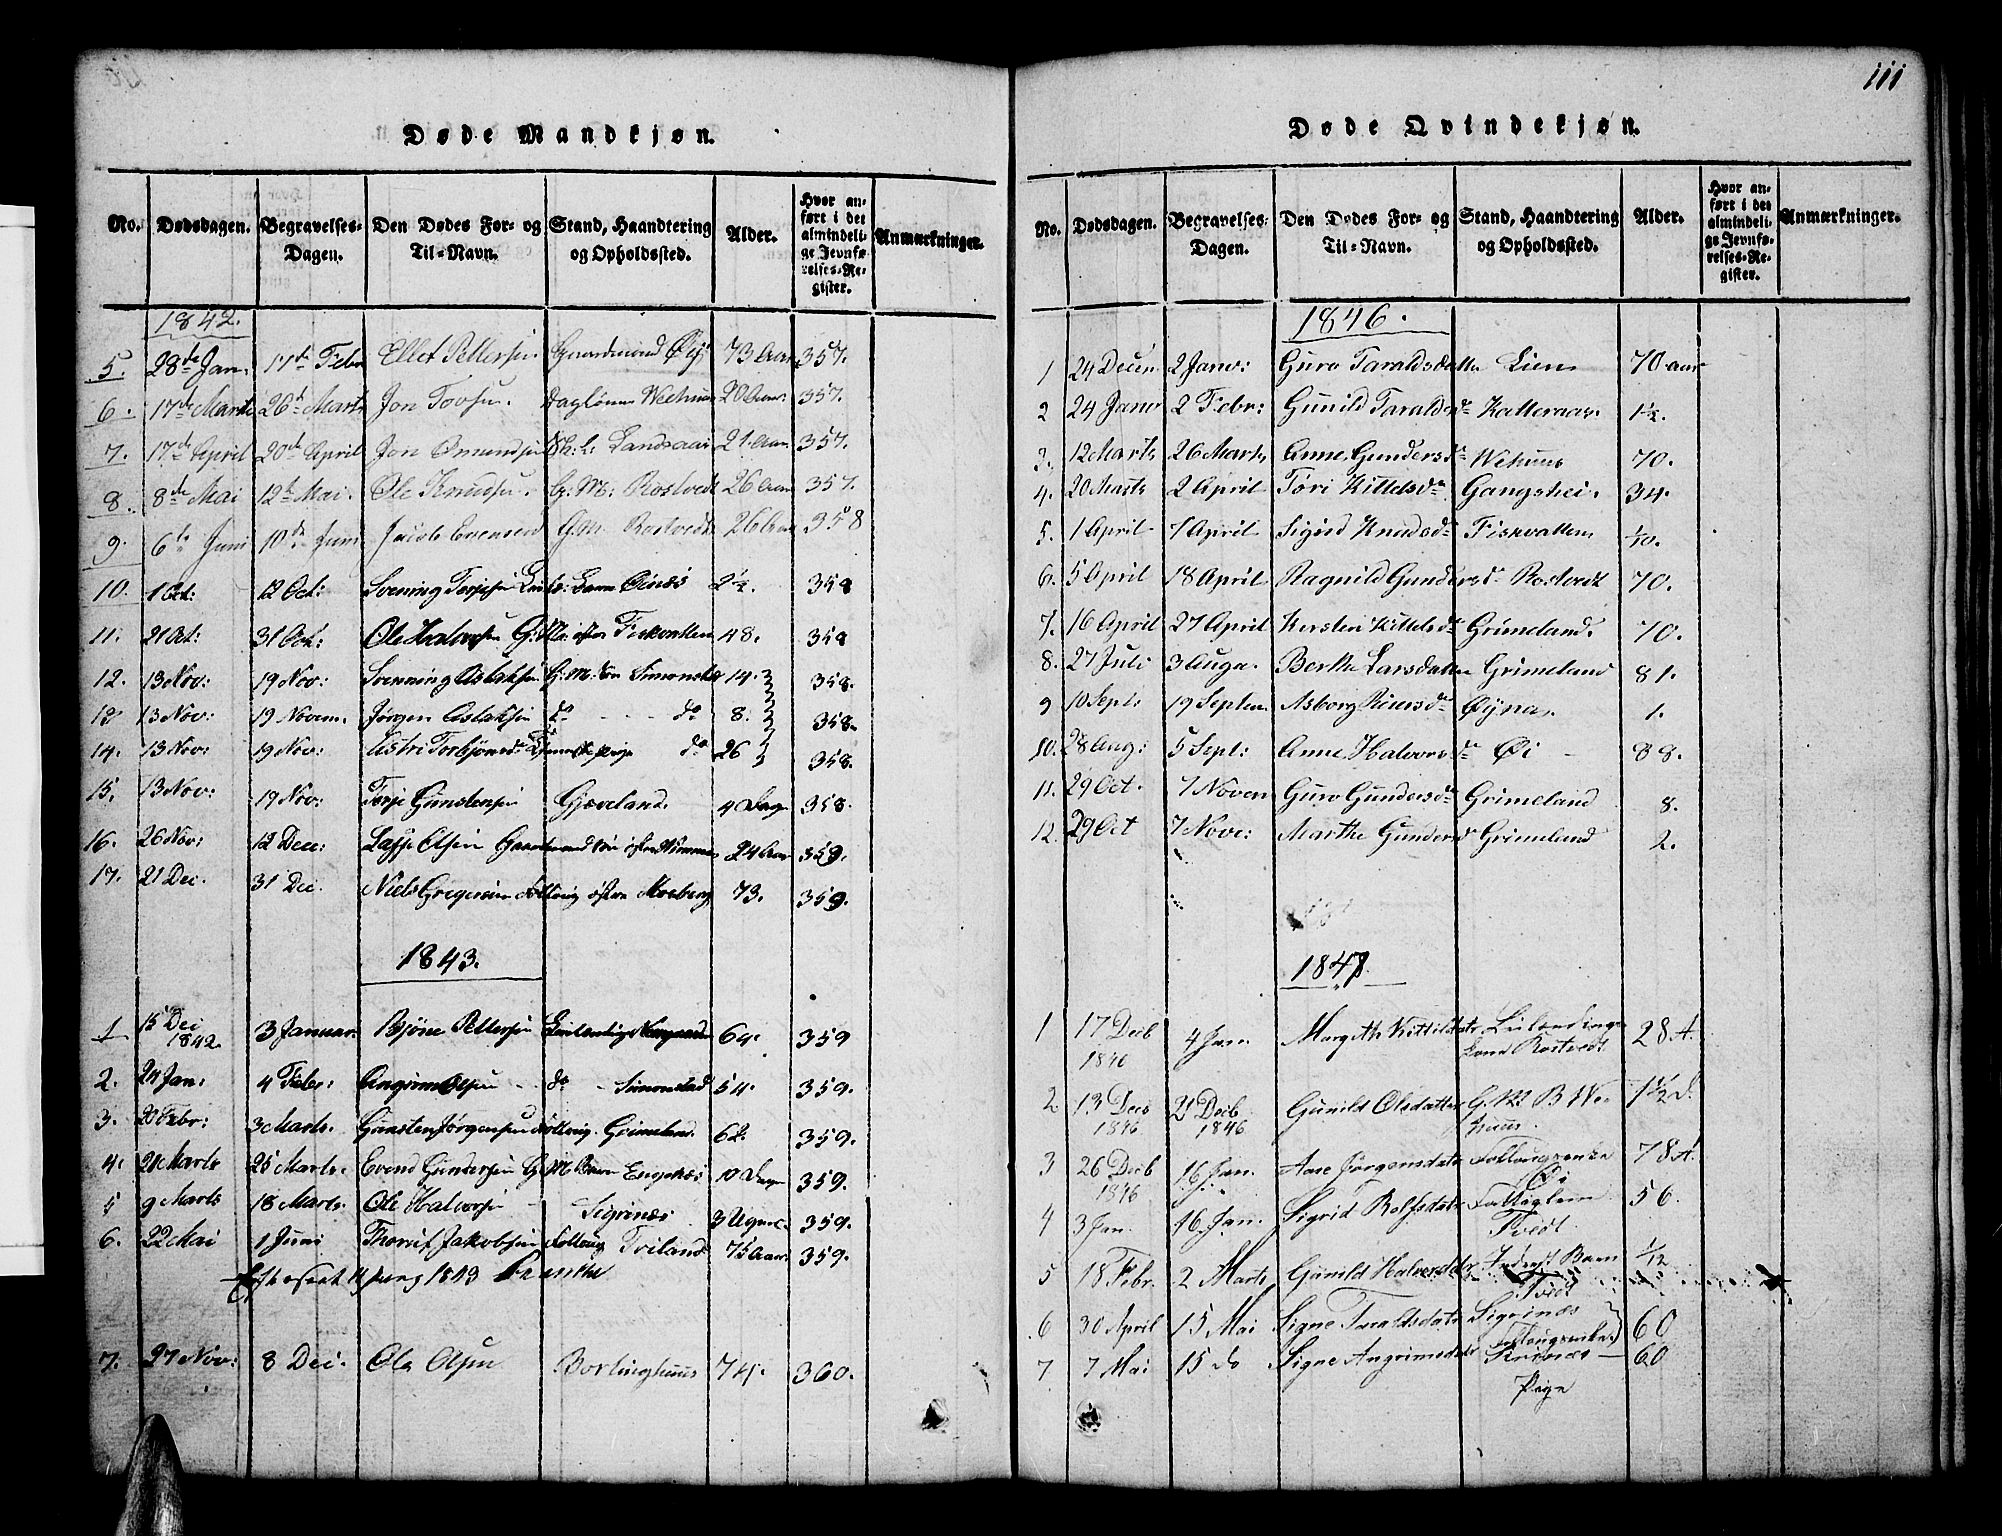 111
Døde Mandkjøn.
No. Dødsdagen. Begravelses-Dagen. Den Dødes For- og Til-Navn. Stand, Haandtering og Opholdssted. Alder. Hvor anført i det almindelige Jevnførelses-Register. Anmærkninger.
1842.
5. 28de Jan: 17de Febr Ellef Pettersen. Gaardmand Øi 73 Aar 357.
6. 17de Marts 26de Marts Jon Tovsen. Daglønner Wehuus 20 Aar 357.
7. 17de April 20de April Jon Omundsen Landsaas 21 Aar 357.
8. 8de Mai 12te Mai. Ole Knudsen. G: M: Rostvedt 26 Aar 357.
9. 6te Juni 10de Juni Jacob Evensen G.M. Rostvedt 26 Aar 358
10. 1 Oct: 12 Oct: Svenning Terjesen Barn Øinæs 2½. 358
11. 21 Oct: 31 Oct: Ole Halvorsen G: M: Fiskvatten 48. 358
12. 13 Nov: 19 Nov: Svenning Aslaksen G: M: Søn Simonstad 14. 358.
13 13 Nov: 19 Novem. Jørgen Aslaksen do do 8. 358.
14. 13 Nov: 19 Nov: Astri Torbjønsd. Tjenestepige do 26 358.
15. 13 Nov: 19 Nov: Terje Gunstensen Gjøveland. 4 Dage 358.
16. 26 Nov: 12 Dece: Olsen Gaardmand Søn 24 Aar 359.
17. 21 Dec. 31 Dec. Niels Gregersen Follaug 73. 359.
1843.
1 15 Dec 1842. 3 Januar. Bjøne Pettersen Leilænding 64. 359
2. 24 Jan: 4 Febr: Angrim Olsen do Simonstad 54. 359.
3. 20 Febr: 3 Marts. Gunsten Jørgensen Follaug. Grimeland. 62. 359.
4. 21 Marts 25 Marts. Evend Gundersen G: M Barn Engenæs 10 Dage 359.
5 9 Marts 18 Marts. Ole Halvorsen Sigrinæs 3 Uger 359.
6. 22 Mai 1 Juni Jakobsen Follaug 75 Aar 359.
Efterseet 14 Juny 1843
7. 27 Nov: 8 Dec. Ole Olsen 74. 360.
Døde Qvindekjøn.
No. Dødsdagen. Begravelses-Dagen. Den Dødes For- og Til-Navn. Stand, Haandtering og Opholdssted. Alder. Hvor anført i det almindelige Jevnførelses-Register. Anmærkninger.
1846.
1 24 Decem 2 Janv: Guro Taraldsdatter Lien 70 aar
2 24 Janv 2 Febr: Gunild Taralds dr Katteraas. 1½.
3. 12 Marts 26 Marts Anne Gundersdr Wehuus 70.
4. 20 Marts 2 April Tøri Kittelsdr Gangshei. 34.
5. 1 April 7 April Sigrid Knudsdr Fiskvatten 1/10.
6. 5 April 18 April Ragnild Gundersdr Rostvedt 70.
7. 16 April 27 April Kersten Kittelsdr Grimeland. 70.
8. 27 Juli 3 Augu. Berthe Larsdatter Grimeland 81.
9 10 Sept: 19 Septem Asborg dr Øyna. 1.
10. 28 Aug: 5 Sept: Anne Halvorsdr Øi 88.
11. 29 Oct. 7 Novem Guro Gundersdr Grimeland 8.
12. 29 Oct 7 Nove: Marthe Gundersdr Grimeland 2.
1847.
1 17 Decb 1846 4 Jan. Margith Kittilsdtr. Leilændingskone Rostvedt 28 A.
2 13 Decb 1846 21 Decb 1846 Gunild Olsdatter G. M. B We-huus. 1½ d.
3 26 Decb 1846 16 Jan. Aase Jørgensdatr Follougsenke Øi 78 A.
4 3 Jan. 16 Jan. Sigrid Rolfsdatr Fattiglem Tvedt. 56.
5 18 Febr. 2 Marts Gunild Halvorsdtr Inderst Barn Tvedt 1/12
6 30 April 15 Mai Signe Taraldsdatr Sigrinæs Follougsenke 60
7 7 Mai 15 do Signe Angrimsdtr Pige 60